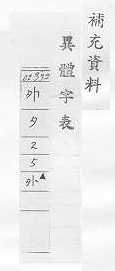 補充資料
異體字表
夕
2
5
外▲